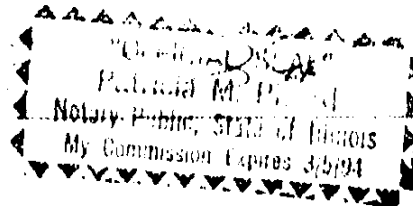 "OFFICIAL SEAL"
Patricia M.
Notary Public, State of Illinois
My Commission Expires 3/5/94